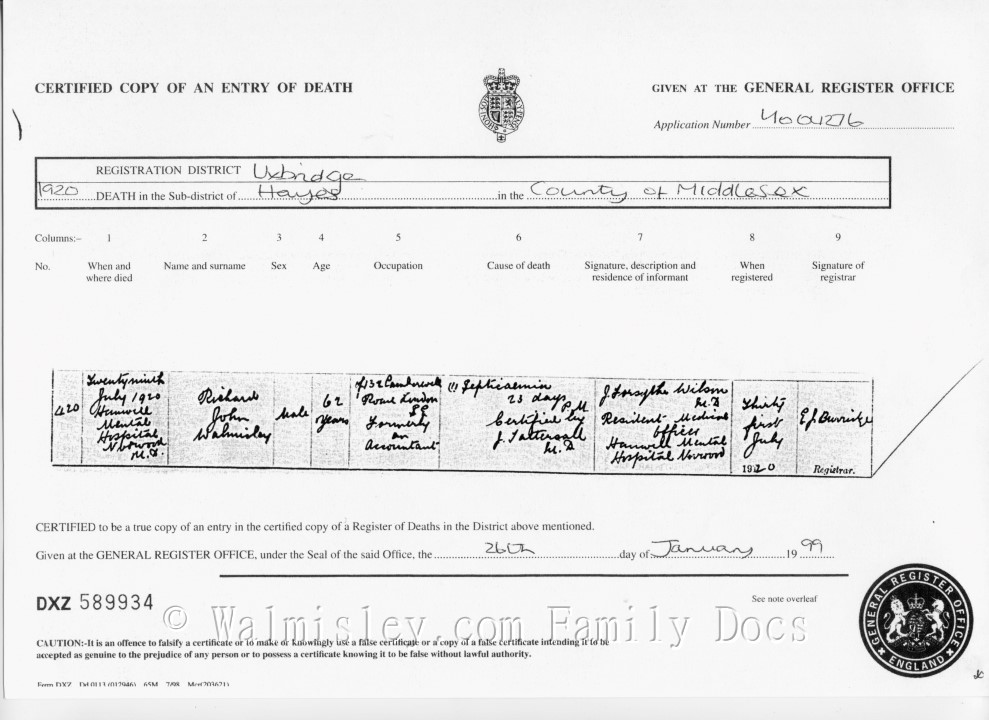 CERTIFIED COPY OF AN ENTRY OF DEATH
GIVEN AT THE GENERAL REGISTER OFFICE
Application Number
REGISTRATION DISTRICT Uxbridge
1920 DEATH in the Sub-district of Hayes in the County of Middlesex
Columns:– 1 2 3 4 5 6 7 8 9
No.
When and
where died
Name and surname
Sex
Age
Occupation
Cause of death
Signature, description and
residence of informant
When
registered
Signature of
registrar
420
Twenty ninth
July 1920
Hanwell
Mental
Hospital
Norwood
Richard
John
Walmisley
Male
62
Years
of 132 Camberwell
Road London
SE
Formerly
an
Accountant
(1) Septicaemia
23 days
P M
Certified by
J. Tattersall
M.D
J Forsythe Wilson
M.D
Resident Medical
Officer
Hanwell Mental
Hospital Norwood
Thirty
first
July
1920
Registrar.
CERTIFIED to be a true copy of an entry in the certified copy of a Register of Deaths in the District above mentioned.
Given at the GENERAL REGISTER OFFICE, under the Seal of the said Office, the 26th day of January 19 99
See note overleaf
DXZ 589934
© Walmisley.com Family Docs
CAUTION:-It is an offence to falsify a certificate or to make or knowingly use a false certificate or a copy of a false certificate intending it to be
accepted as genuine to the prejudice of any person or to possess a certificate knowing it to be false without lawful authority.
GENERAL REGISTER OFFICE
ENGLAND